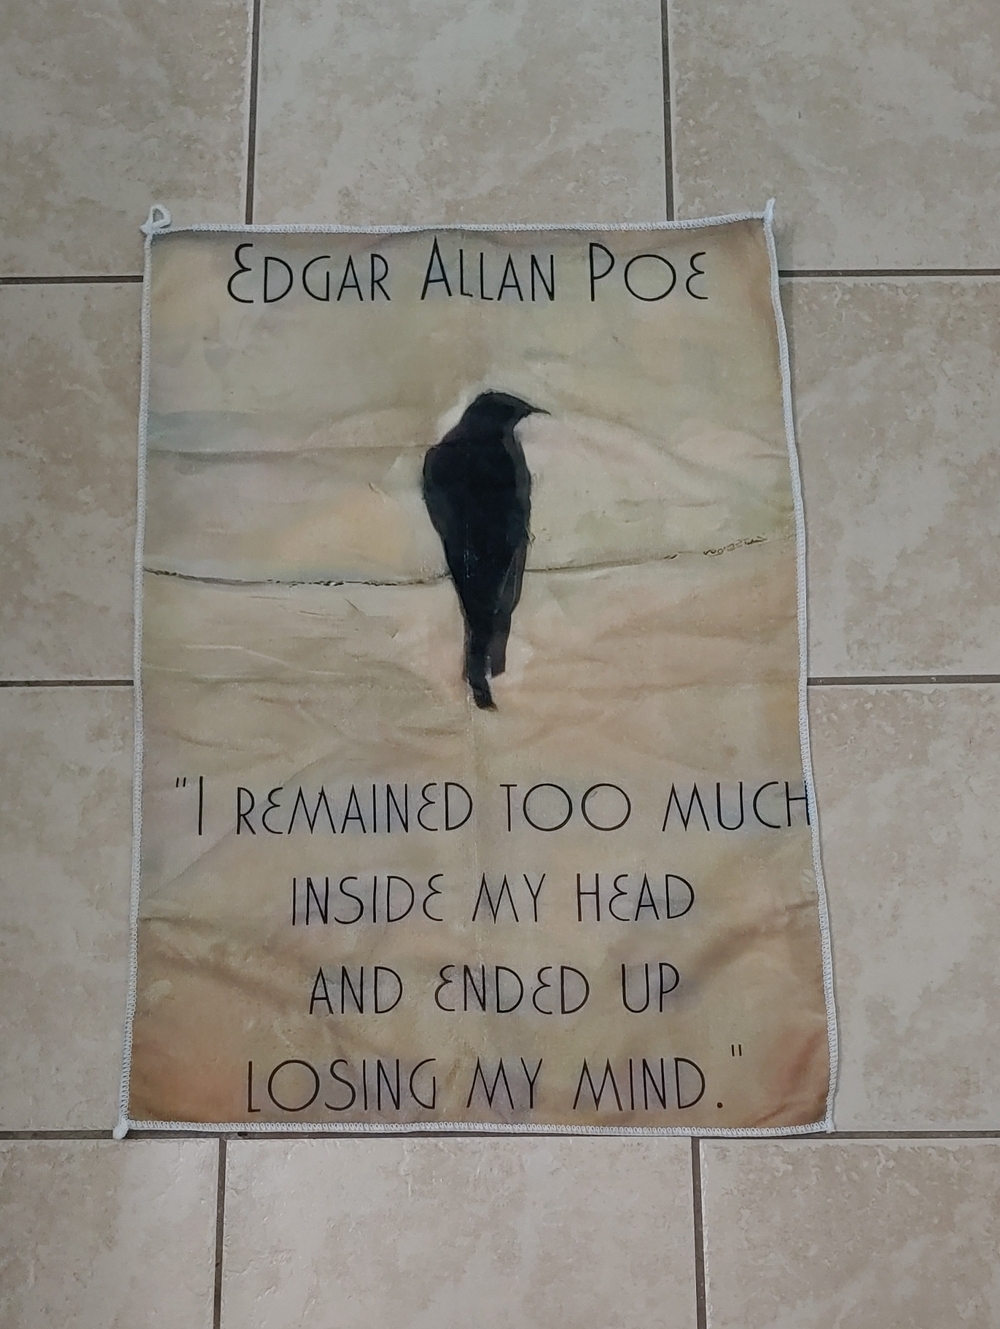 Edgar Allan Poe
"I REMAINED TOO MUCH
INSIDE MY HEAD
AND ENDED UP
LOSING MY MIND."